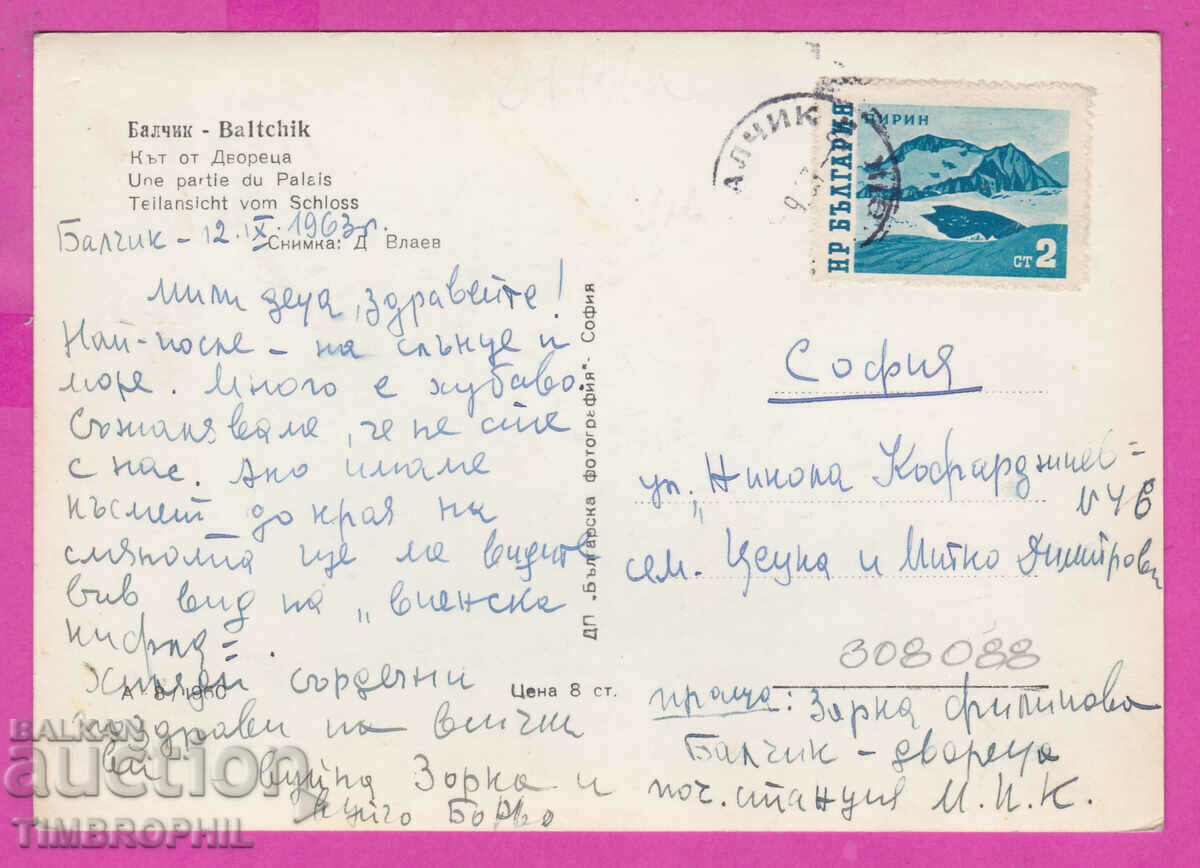 Балчик - Baltchik
Кът от Двореца
Une partie du Palais
Teilansicht vom Schloss
Снимка: Д Влаев
Балчик - 12.IX.1963г.
Мили деца, здравейте!
Най-после - на слънце и
море. Много е хубаво.
Съжаляваме, че не сте
с нас. Ако имаме
късмет до края на
смяната ще ме видите
във вид на „виенска
Хиляди сърдечни
поздрави на всички
вуйна Зорка и
вуйчо Борво
А 8 / 1960
Цена 8 ст.
ДП „Българска фотография" - София
АЛЧИК
НР БЪЛГАРИЯ
ПИРИН
СТ 2
София
ул. „Никола Кофарджиев =
сем. Цеуна и Митко Димитрови
308088
праща: Зорка Филипова
Балчик - двореца
поч. станция М.П.К.
BALKAN
auction
TIMBROPHIL